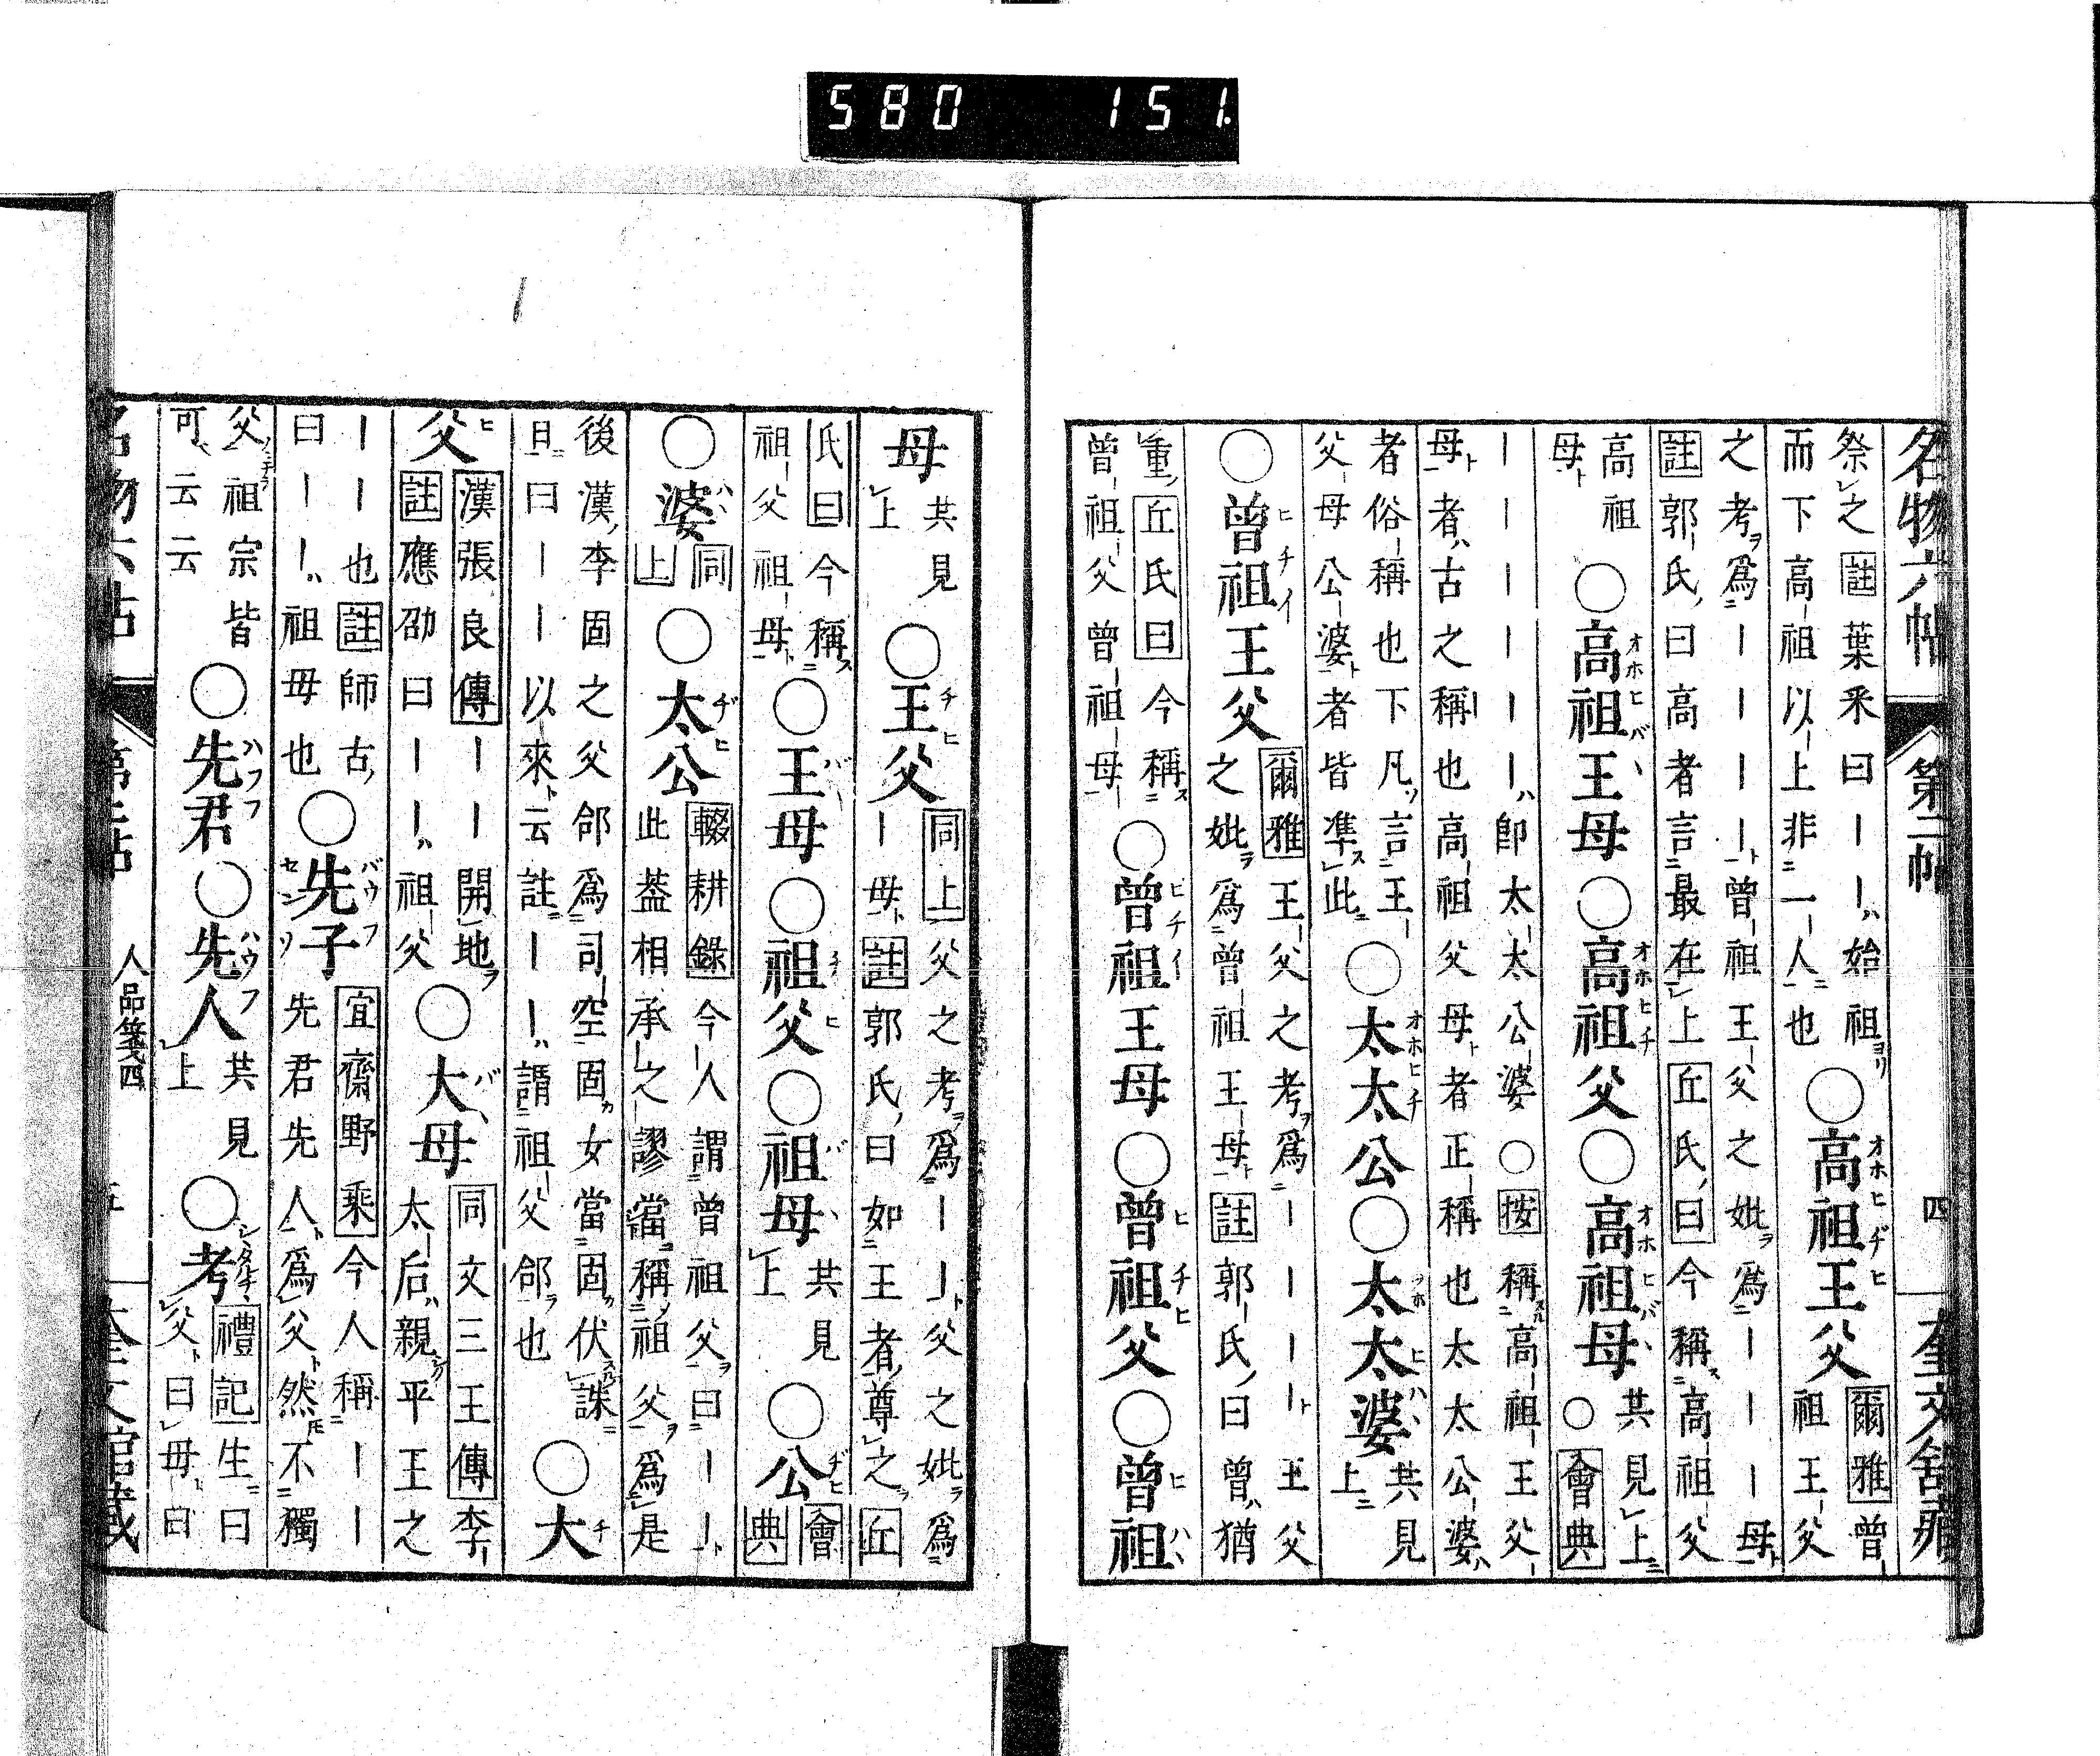 580 151.
名物六帖 第二帖 四 奎文舘藏
祭之註葉釆曰ーー始祖
而下高祖以上非一人也
○高祖王父
爾雅曾
祖王父
之考爲ーーーー曾祖王父之妣爲ーーー母
註郭氏曰高者言最在上丘氏曰今稱高祖父
高祖
母
○高祖王母○高祖父○高祖母
共見上
○會典
ーーーーーー即太太公婆○按稱高祖王父
母者古之稱也高祖父母者正稱也太太公婆
者俗稱也下凡言王
父母公婆者皆準此
○太太公○太太婆
共見
上
○曾祖王父
爾雅王父之考爲ーーー王父
之妣爲曾祖王母註郭氏曰曾猶
重丘氏曰今稱
曾祖父曾祖母
○曾祖王母○曾祖父○曾祖
母
共見
上
○王父
同上父之考爲ーー父之妣爲
ー母註郭氏曰如王者尊之丘
氏曰今稱
祖父祖母
○王母○祖父○祖母
共見
上
○公
會
典
○婆
同
上
○太公
輟耕錄今人謂曾祖父曰ーー
此葢相承之謬當稱祖父爲是
後漢李固之父郃爲司空固女當固伏誅
且曰ーー以來云註ーー謂祖父郃也
○大
父
漢張良傳ーー開地
註應劭曰ーー祖父
○大母
同文三王傳李
太后親平王之
ーー也註師古
曰ーー祖母也
○先子
宜齋野乘今人稱ーー
先君先人爲父然不獨
父祖宗皆
可云云
○先君○先人
共見
上
○考
禮記生曰
父曰母曰
名物六帖 第二帖 人品箋四 五 奎文館藏